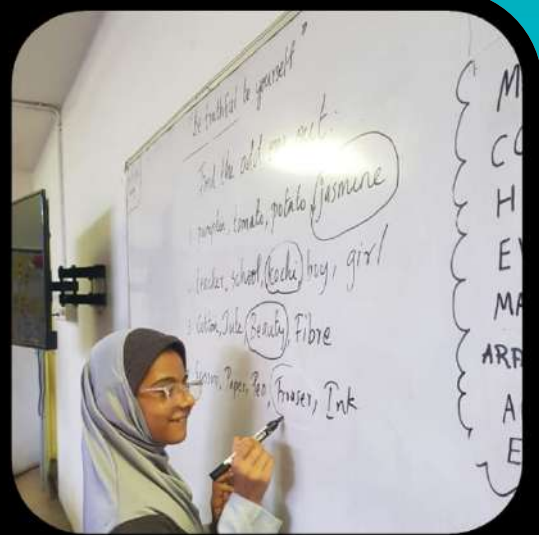 "Be truthful be yourself"
Find the odd one out:
1. pumpkin, tomato, potato, jasmine
teacher, school, Kochi, boy, girl
3. Cotton, Jute, Beauty, Fibre
Paper, Pen, Eraser, Ink
M
CO
H
E
MA
ARE
A
E